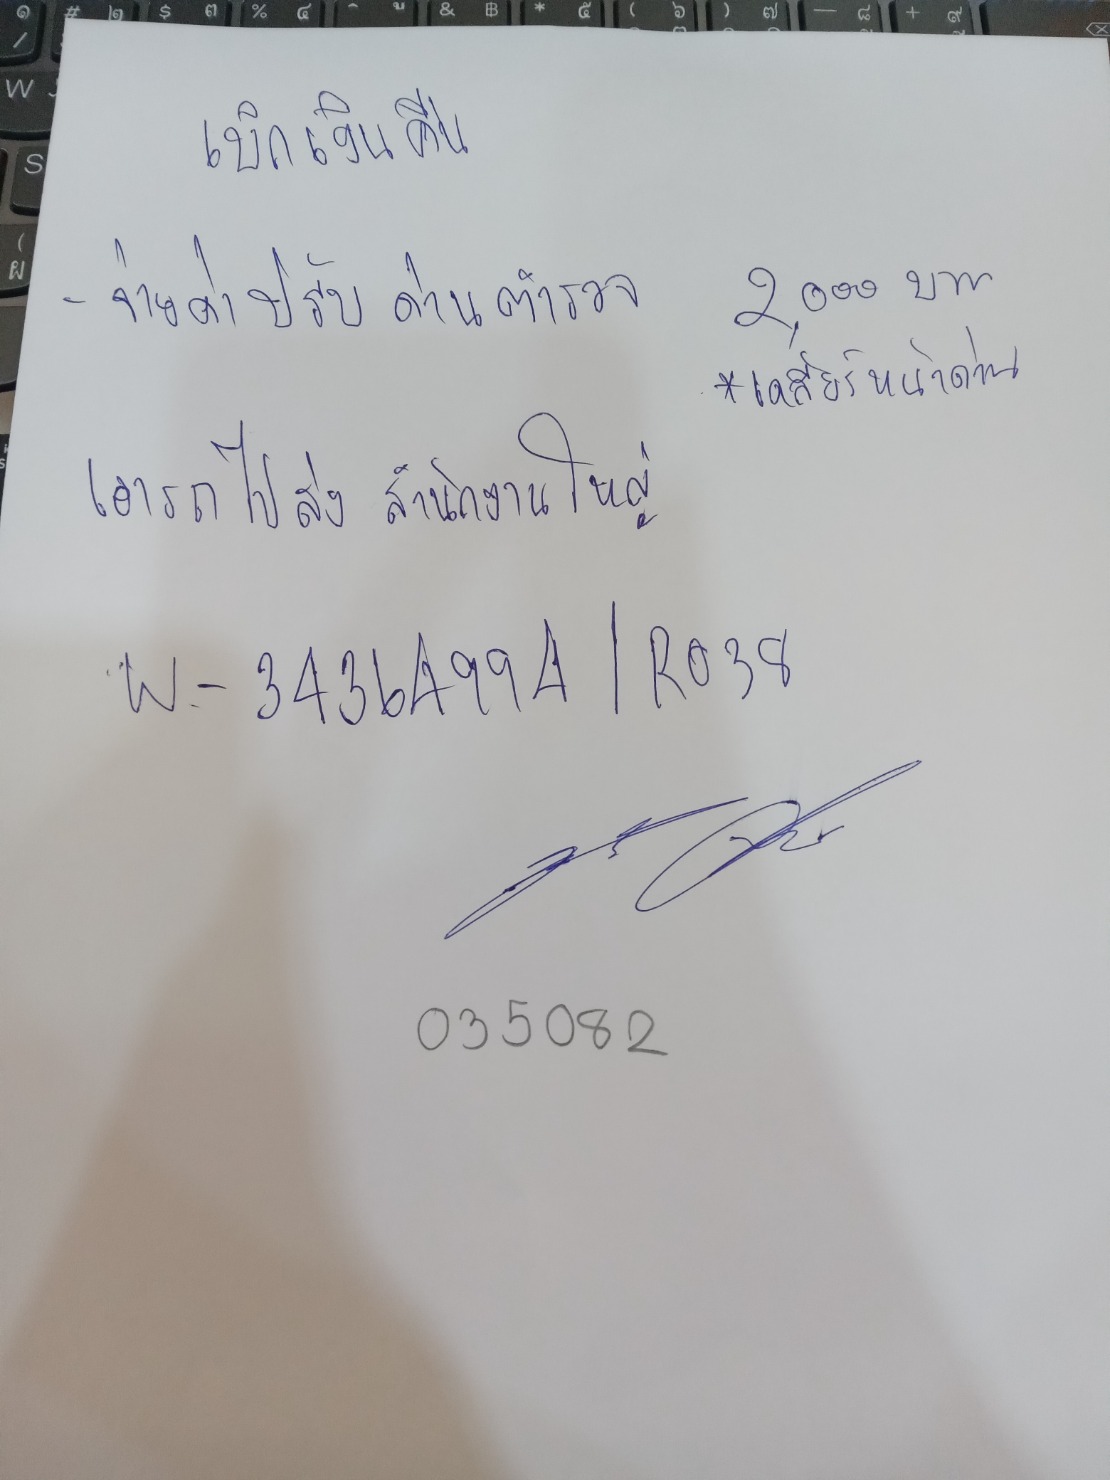 เบิกเงินคืน
- จ่ายค่าปรับ ด่านตำรวจ 2,000 บาท
*เคลียร์หน้าด่าน
เอารถไปส่ง สำนักงานใหญ่
W-3436A99A / R038
035082